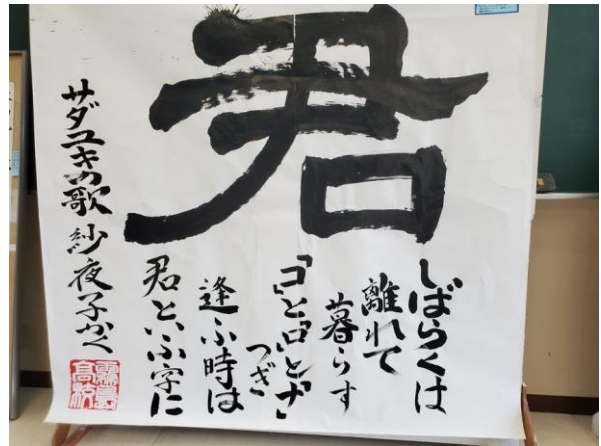 君
しばらくは
離れて
暮らす
「コ」と「ロ」と「ナ」
つぎ
逢ふ時は
君といふ字に
サダユキの歌 紗夜子かく
霧島
高校